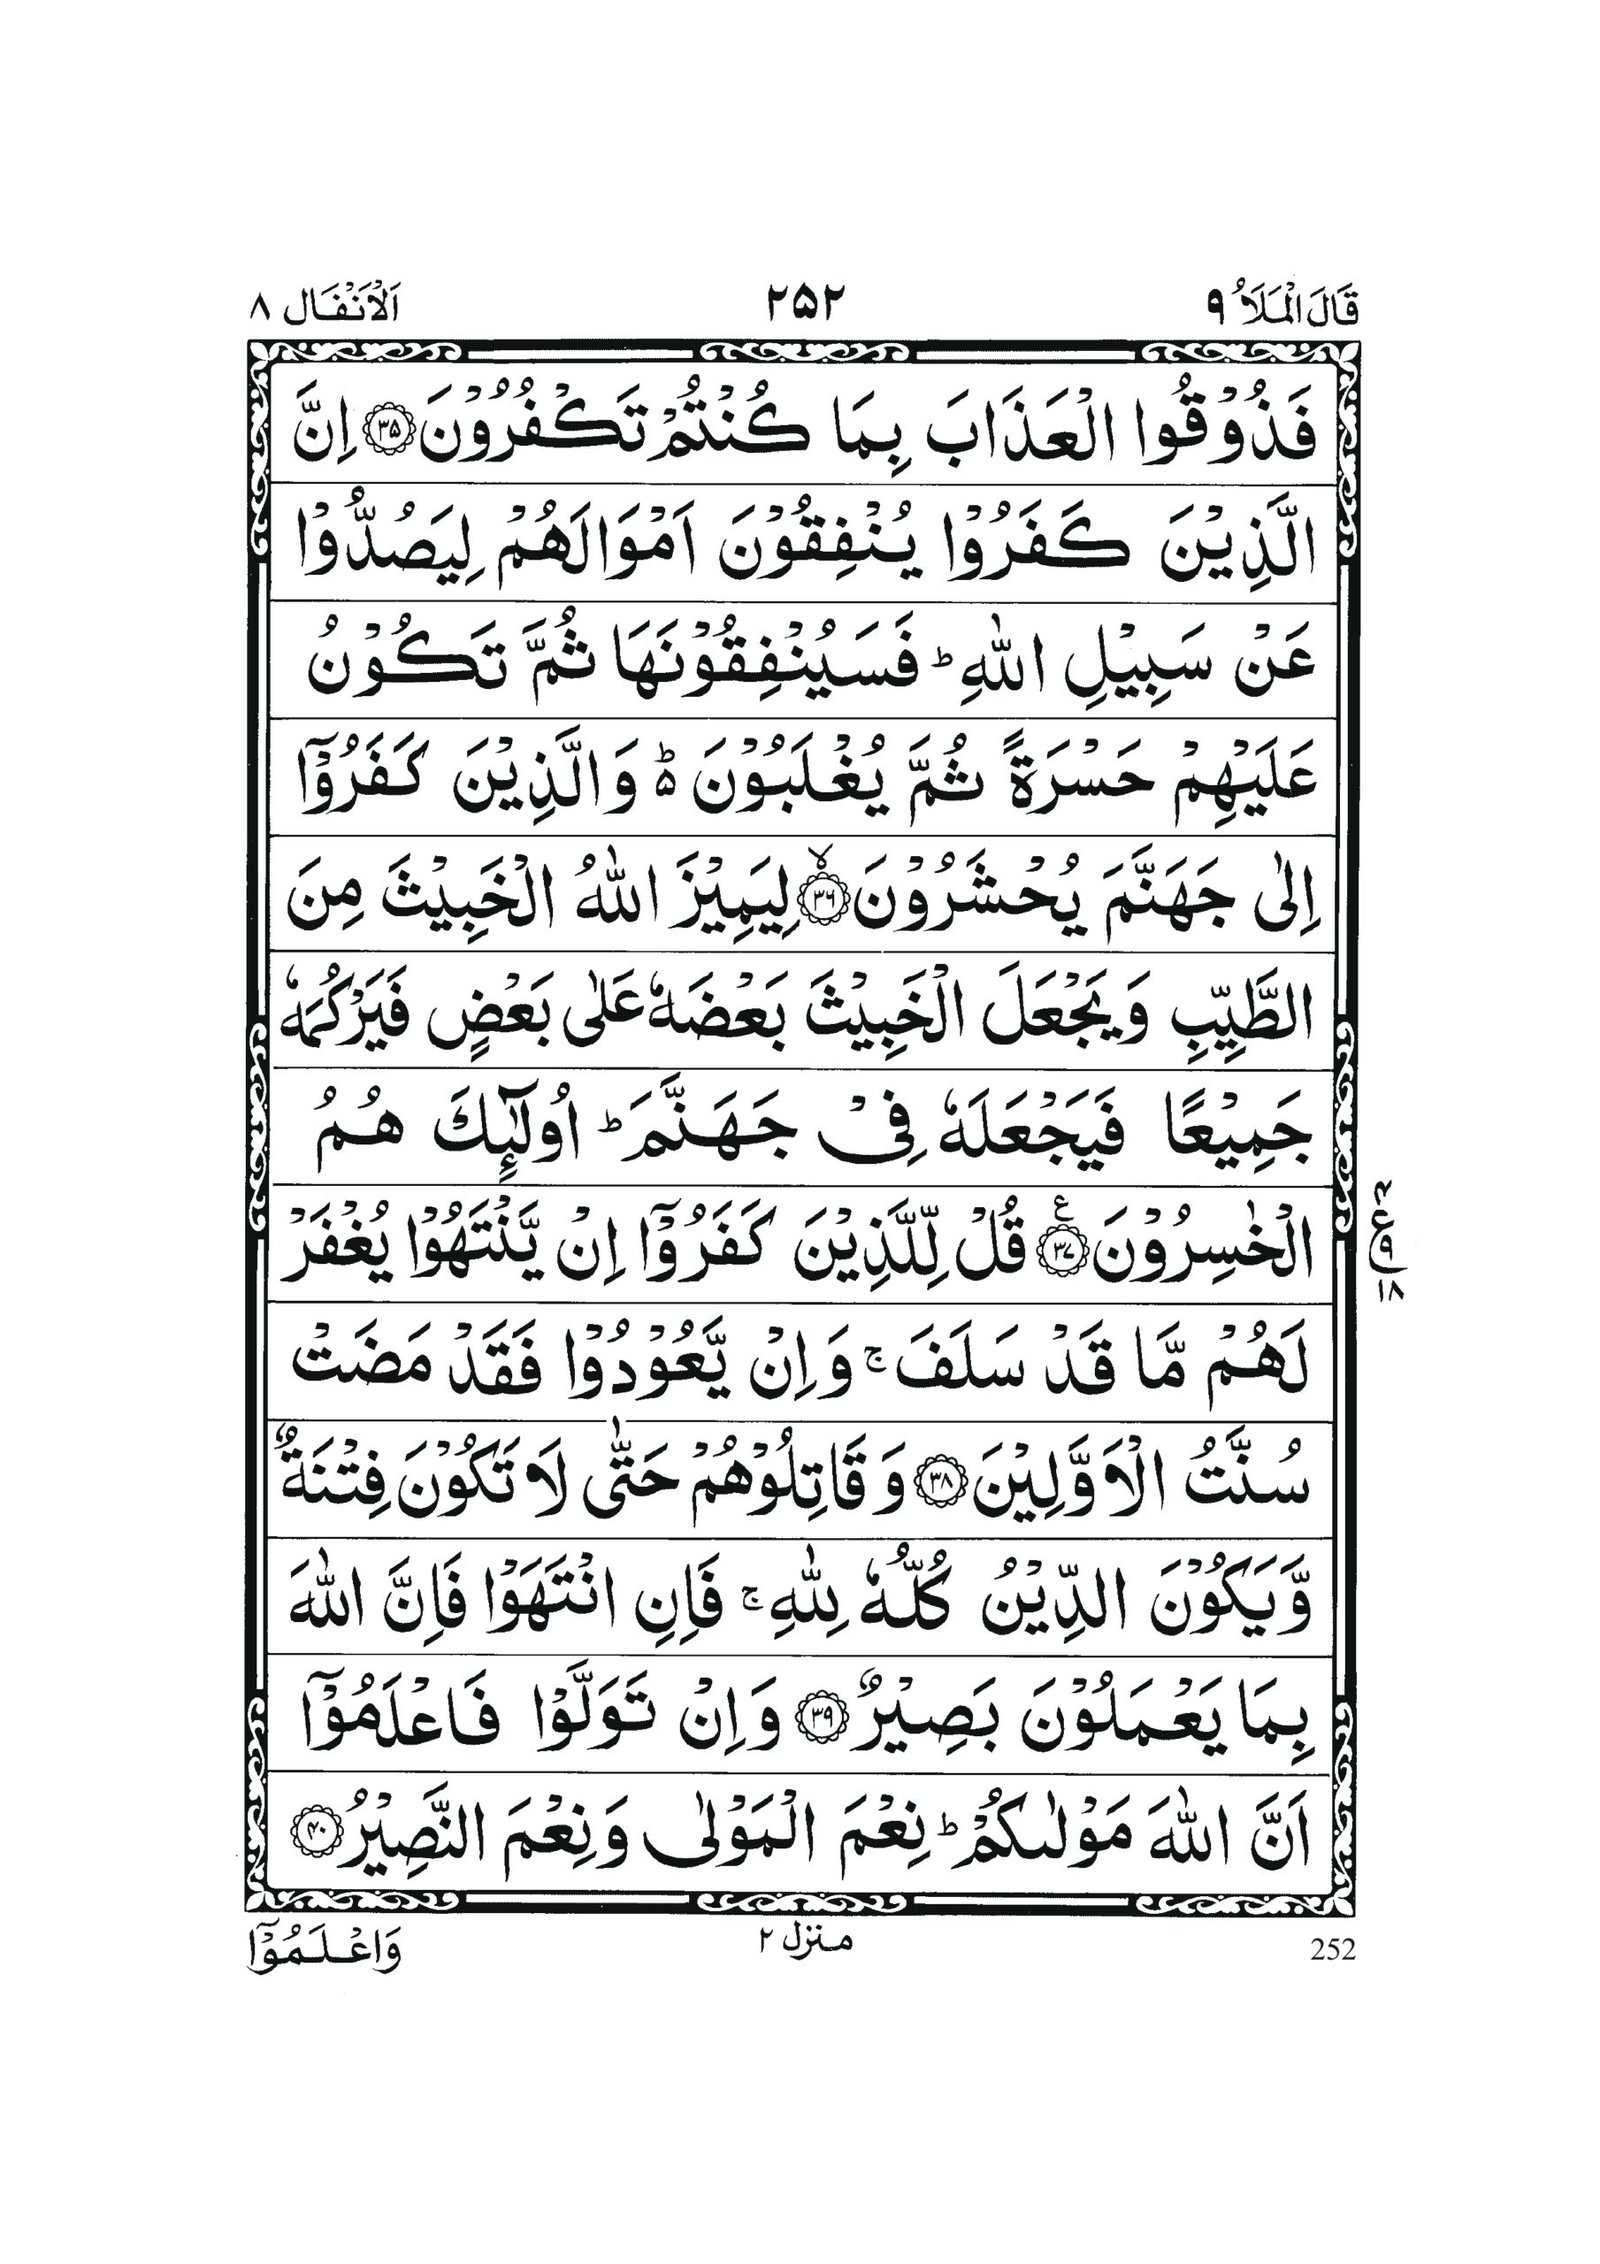 قَالَ الْمَلَاُ ٩
٢٥٢
اَلْاَنْفَال ٨
فَذُوْقُوا الْعَذَابَ بِمَا كُنْتُمْ تَكْفُرُوْنَ ﴿٣٥﴾ اِنَّ
الَّذِيْنَ كَفَرُوْا يُنْفِقُوْنَ اَمْوَالَهُمْ لِيَصُدُّوْا
عَنْ سَبِيْلِ اللّٰهِ ؕ فَسَيُنْفِقُوْنَهَا ثُمَّ تَكُوْنُ
عَلَيْهِمْ حَسْرَةً ثُمَّ يُغْلَبُوْنَ ۬ؕ وَالَّذِيْنَ كَفَرُوْۤا
اِلٰى جَهَنَّمَ يُحْشَرُوْنَ ﴿٣٦﴾ۙ لِيَمِيْزَ اللّٰهُ الْخَبِيْثَ مِنَ
الطَّيِّبِ وَيَجْعَلَ الْخَبِيْثَ بَعْضَهٗ عَلٰى بَعْضٍ فَيَرْكُمَهٗ
جَمِيْعًا فَيَجْعَلَهٗ فِيْ جَهَنَّمَ ؕ اُولٰٓئِكَ هُمُ
الْخٰسِرُوْنَ ﴿٣٧﴾ ع قُلْ لِّلَّذِيْنَ كَفَرُوْۤا اِنْ يَّنْتَهُوْا يُغْفَرْ
لَهُمْ مَّا قَدْ سَلَفَ ۚ وَاِنْ يَّعُوْدُوْا فَقَدْ مَضَتْ
سُنَّتُ الْاَوَّلِيْنَ ﴿٣٨﴾ وَقَاتِلُوْهُمْ حَتّٰى لَا تَكُوْنَ فِتْنَةٌ
وَّيَكُوْنَ الدِّيْنُ كُلُّهٗ لِلّٰهِ ۚ فَاِنِ انْتَهَوْا فَاِنَّ اللّٰهَ
بِمَا يَعْمَلُوْنَ بَصِيْرٌ ﴿٣٩﴾ وَاِنْ تَوَلَّوْا فَاعْلَمُوْۤا
اَنَّ اللّٰهَ مَوْلٰىكُمْ ؕ نِعْمَ الْمَوْلٰى وَنِعْمَ النَّصِيْرُ ﴿٤٠﴾
ع
٩
١٨
252
منزل ٢
وَاعْلَمُوْۤا